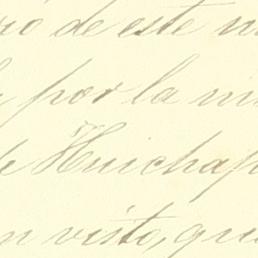 rio de este m
por la mi
de Huichap
n visto, que